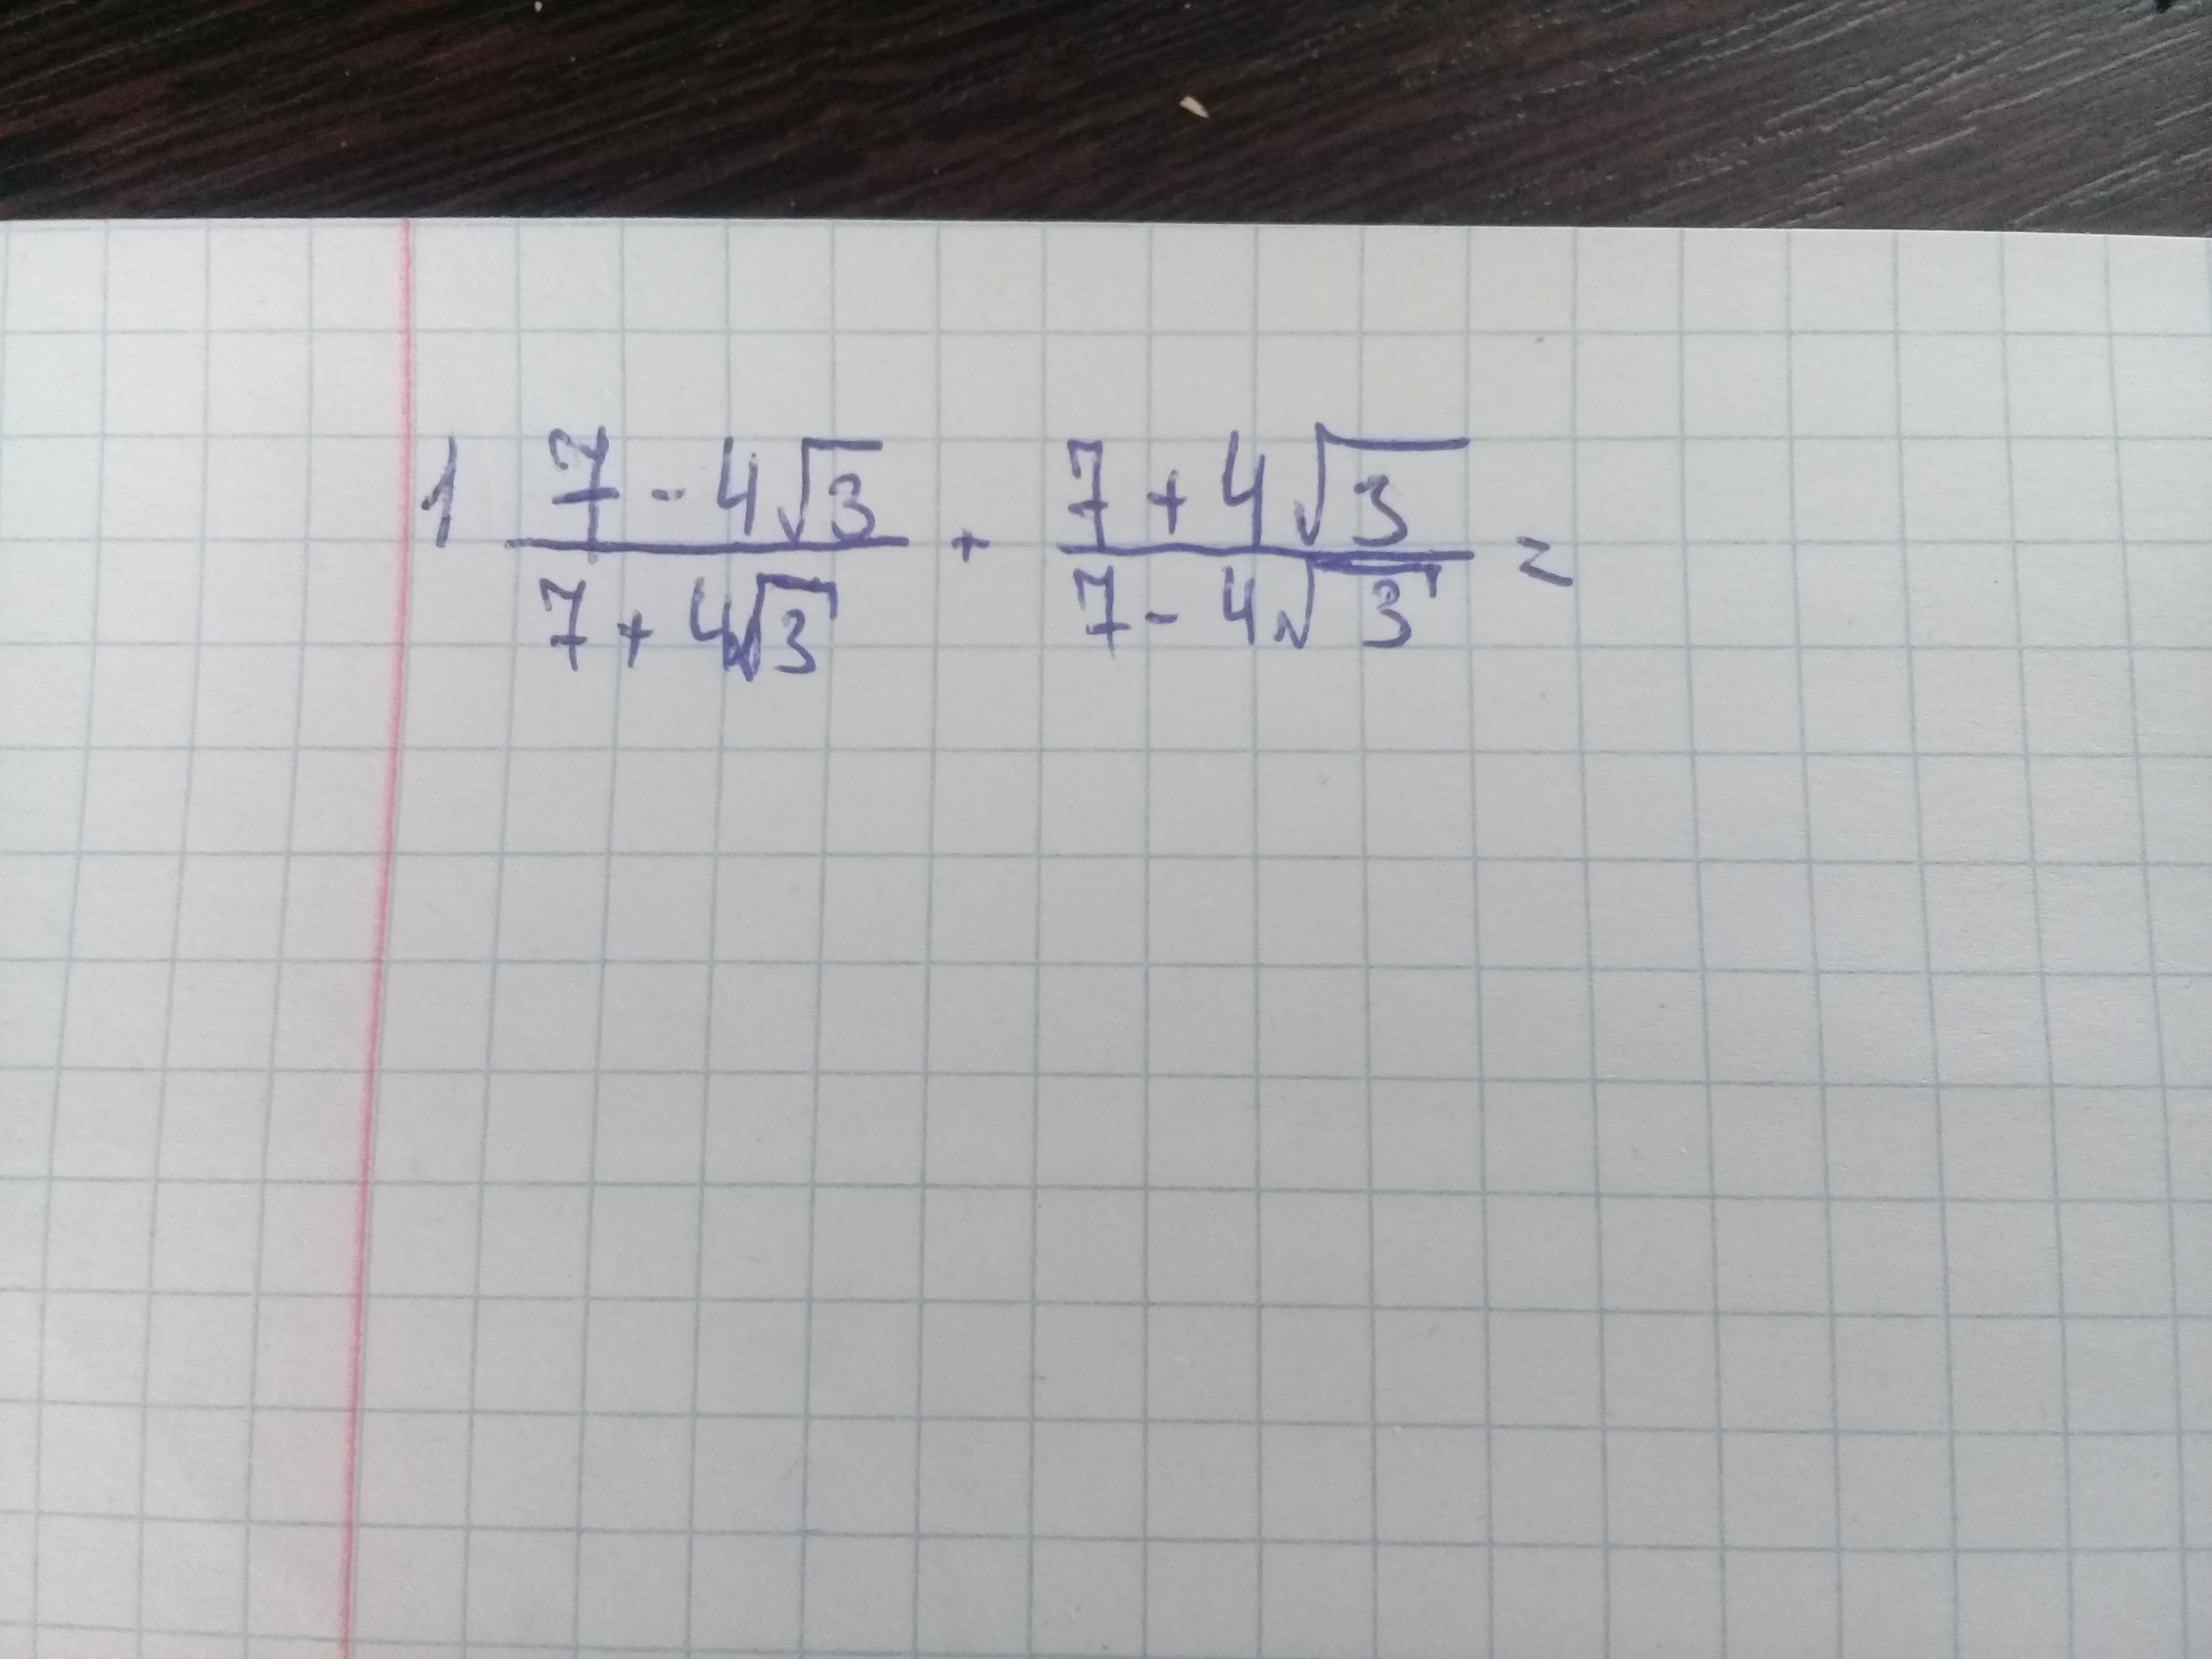 1 (7 - 4√3)/(7 + 4√3) + (7 + 4√3)/(7 - 4√3) =